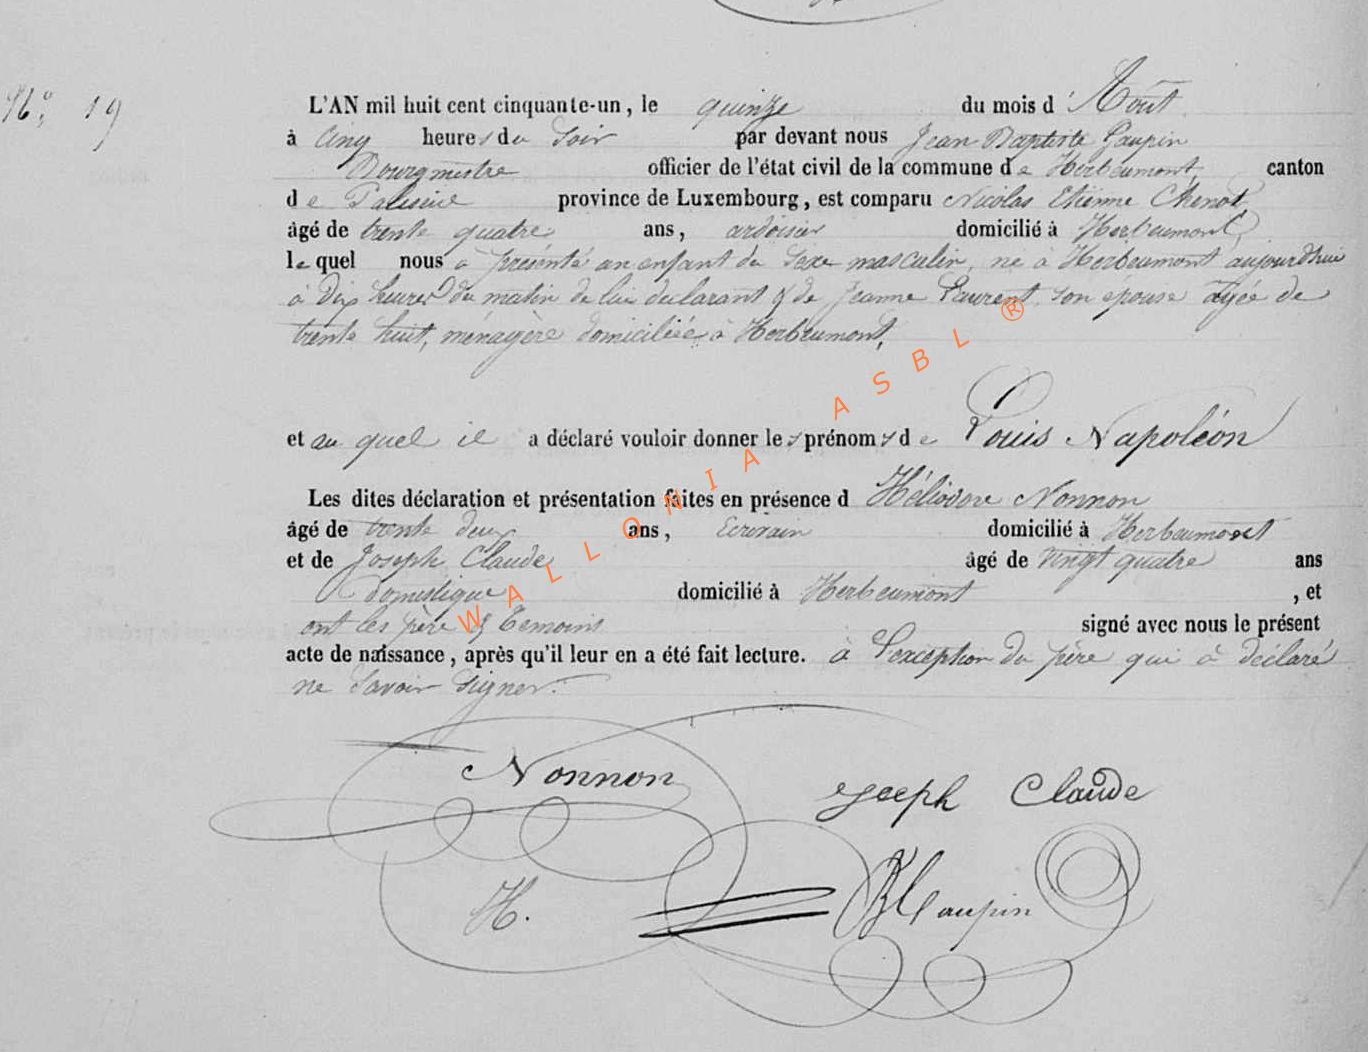 N.° 19
L'AN mil huit cent cinquante-un, le quinze du mois d'Août
à cinq heures du soir par devant nous Jean Baptiste Gaupin
Bourgmestre officier de l'état civil de la commune de Herbeumont, canton
de Paliseul province de Luxembourg, est comparu Nicolas Etienne Chenot
âgé de trente quatre ans, ardoisier domicilié à Herbeumont,
lequel nous a présenté un enfant du sexe masculin, né à Herbeumont aujourd'hui
à Dix heures du matin de lui declarant & de Jeanne Laurent son epouse âgée de
trente huit, ménagère domiciliée à Herbeumont,
et au quel il a déclaré vouloir donner les prénoms de Louis Napoléon
Les dites déclaration et présentation faites en présence d Héliodore Nonnon
âgé de trente deux ans, Ecrivain domicilié à Herbeumont
et de Joseph Claude âgé de vingt quatre ans
domestique domicilié à Herbeumont, et
ont les père & témoins signé avec nous le présent
acte de naissance, après qu'il leur en a été fait lecture. à l'exception du père qui a déclaré
ne savoir signer.
Nonnon
Joseph Claude
H.
WALLONIA ASBL ®